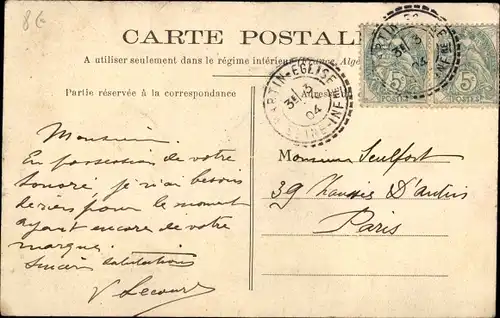 8€
CARTE POSTALE
A utiliser seulement dans le régime intérieur (France, Algé
Partie réservée à la correspondance
Adresse
MARTIN-ÉGLISE
1 3
04
SEINE-INF RE
5c
POSTES
5c
POSTES
Monsieur.
En possession de votre
honoré, je n'ai besoin
de rien pour le moment
ayant encore de votre
marque.
Sincères salutations
V. Lecourt
Monsieur Seulfort
39 Chaussée D'Antin
Paris